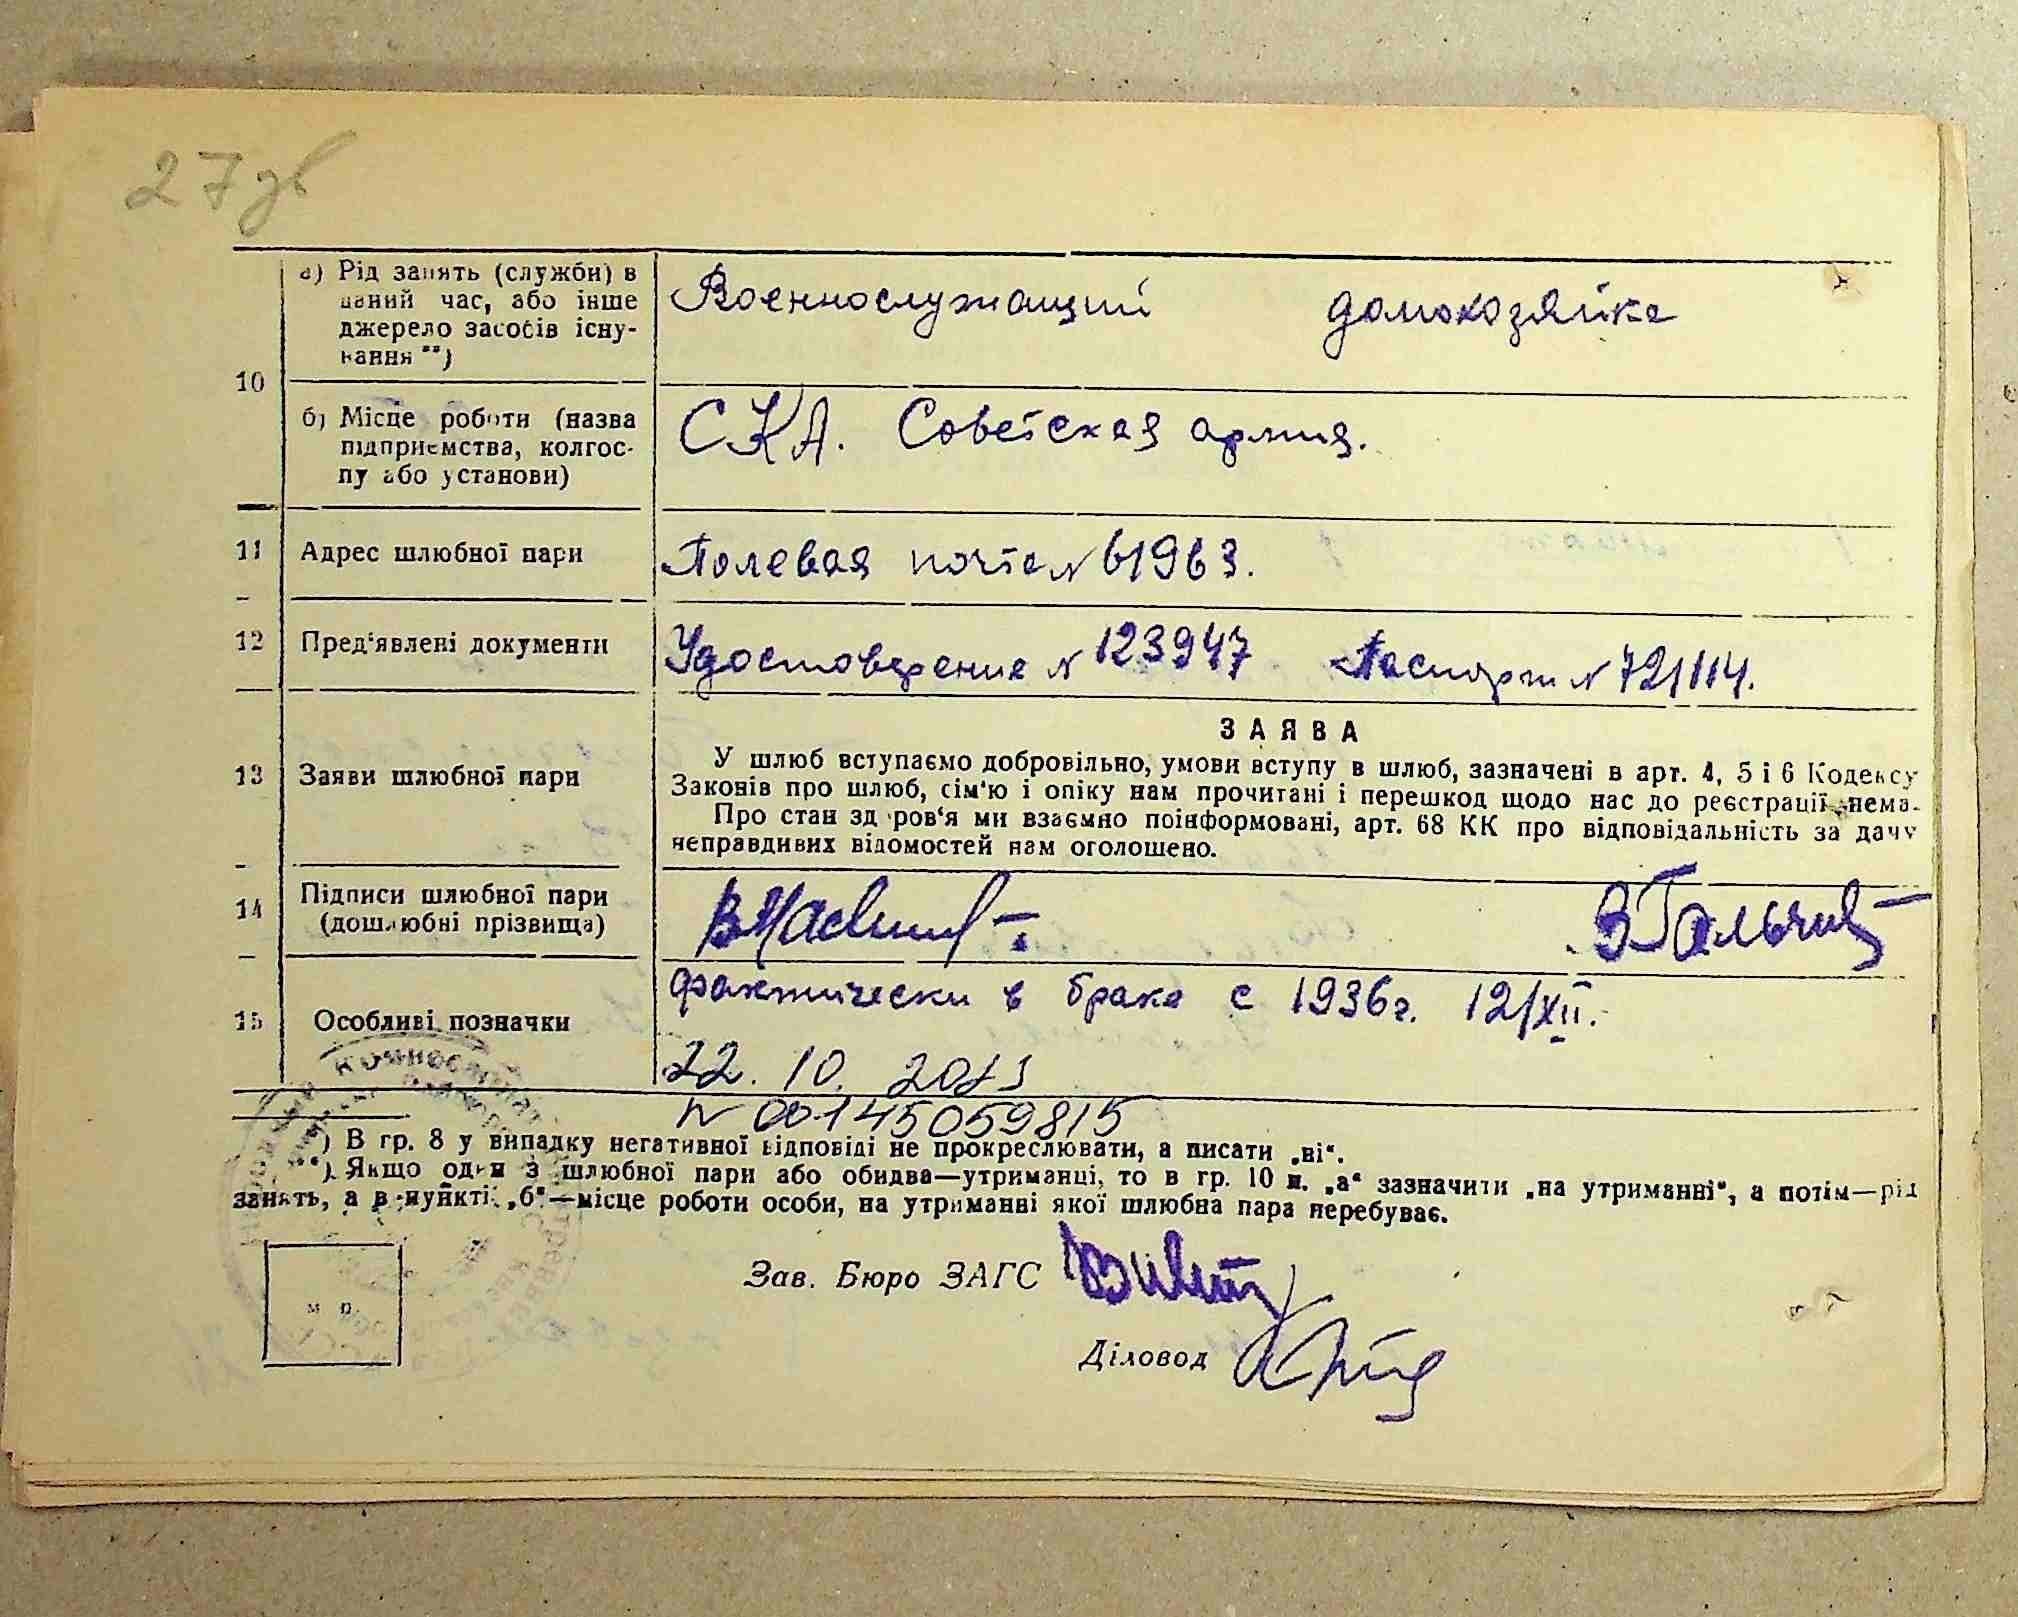 27 зв
а) Рід занять (служби) в
даний час, або інше
джерело засобів існу-
вання **)
Военнослужащий домохозяйка
10
б) Місце роботи (назва
підприємства, колгос-
пу або установи)
СКА. Советская армия.
11 Адрес шлюбної пари Полевая почта N 61963.
12 Пред‘явлені документи Удостоверение N 123947 Паспорт N 721114.
ЗАЯВА
13 Заяви шлюбної пари
У шлюб вступаємо добровільно, умови вступу в шлюб, зазначені в арт. 4, 5 і 6 Кодексу
Законів про шлюб, сім‘ю і опіку нам прочитані і перешкод щодо нас до реєстрації нема.
Про стан здоров‘я ми взаємно поінформовані, арт. 68 КК про відповідальність за дачу
неправдивих відомостей нам оголошено.
14 Підписи шлюбної пари
(дошлюбні прізвища)
15 Особливі позначки
фактически в браке с 1936г. 12/XII.
22. 10. 2013
N 00145059815
*) В гр. 8 у випадку негативної відповіді не прокреслювати, а писати „ні“.
**) Якщо один з шлюбної пари або обидва—утриманці, то в гр. 10 п. „а“ зазначити „на утриманні“, а потім—рід
занять, а в пункті „б“—місце роботи особи, на утриманні якої шлюбна пара перебуває.
Зав. Бюро ЗАГС
М П.
Діловод